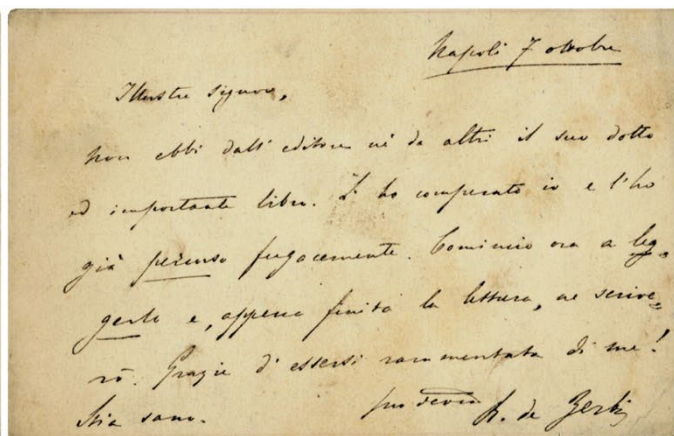 Napoli 7 ottobre
Illustre signore,
Non ebbi dall' editore nè da altri il suo dotto
ed importante libro. L' ho comperato io e l'ho
già percorso fugacemente. Comincio ora a leg-
gerlo e, appena finita la lettura, ne scrive-
rò. Grazie d' essersi rammentata di me!
Stia sano.
suo devmo R. de Zerbi